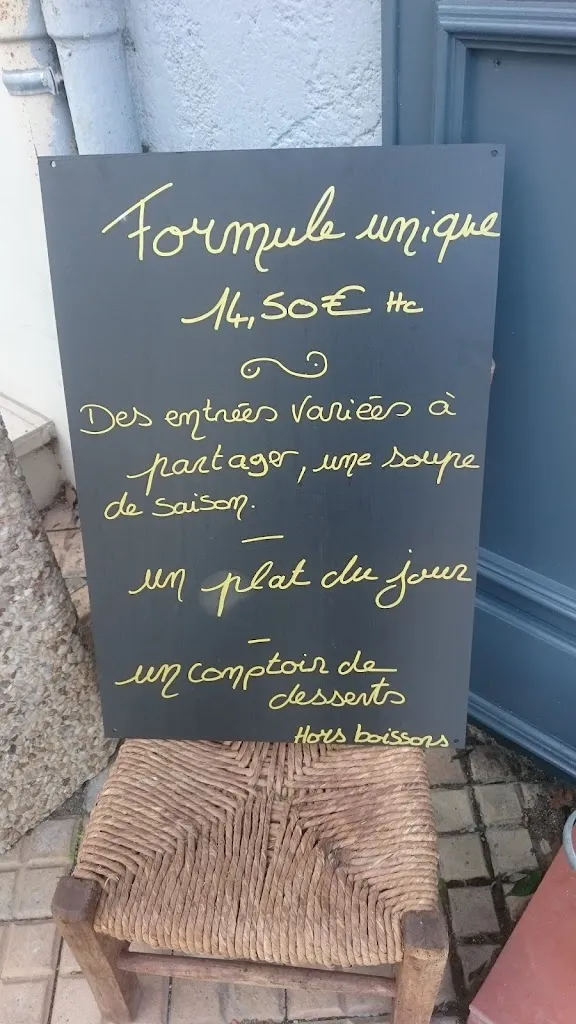 Formule unique
14,50€ Hc
Des entrées Variées à
partager, une soupe
de saison.
un plat du jour
un comptoir de
desserts
Hors boissons